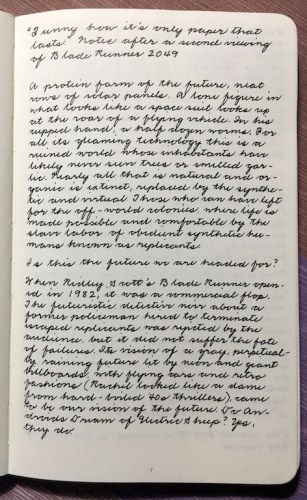 "Funny how it's only paper that
lasts." Notes after a second viewing
of Blade Runner 2049
A protein farm of the future, neat
rows of solar panels. A lone figure in
what looks like a space suit looks up
at the roar of a flying vehicle. In his
cupped hand, a half dozen worms. For
all its gleaming technology this is a
ruined world whose inhabitants have
likely never seen trees or smelled gar-
lic. Nearly all that is natural and or-
ganic is extinct, replaced by the synthe-
tic and virtual. Those who can have left
for the off-world colonies, where life is
made possible and comfortable by the
slave labor of obedient synthetic hu-
mans known as replicants.
Is this the future we are headed for?
When Ridley Scott's Blade Runner open-
ed in 1982, it was a commercial flop.
The futuristic detective noir about a
former policeman hired to terminate
escaped replicants was rejected by the
audience, but it did not suffer the fate
of failures. Its vision of a gray, perpetual-
ly raining future lit by neon and giant
billboards, with flying cars and retro
fashions (Rachel looked like a dame
from hard-boiled 40s thrillers), came
to be our vision of the future. Do An-
droids Dream of Electric Sheep? Yes,
they do.